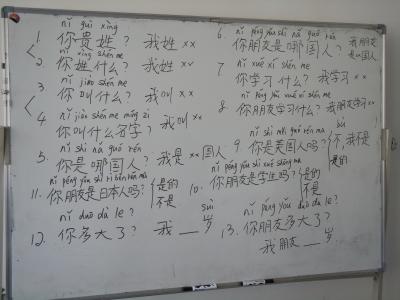 nǐ guì xìng
1. 你贵姓? 我姓 xx
nǐ xìng shén me
2. 你姓什么? 我姓 xx
nǐ jiào shén me
3. 你叫什么? 我叫 xx
nǐ jiào shén me míng zi
4. 你叫什么名字? 我叫 xx
nǐ shì nǎ guó rén
5. 你是哪国人? 我是 xx 国人
nǐ péng yǒu shì rì běn rén ma
11. 你朋友是日本人吗? 是的 不是
nǐ duō dà le?
12. 你多大了? 我 __ 岁
suì
nǐ péng yǒu shì nǎ guó rén
6. 你朋友是哪国人? 我朋友
是xx国人
nǐ xué xí shén me
7 你学习什么? 我学习 xx
nǐ péng yǒu xué xí shén me
8. 你朋友学习什么? 我朋友学习 xx
nǐ shì měi guó rén ma
9. 你是美国人吗? 不,我不是
是的
nǐ péng yǒu shì xué shēng ma
10. 你朋友是学生吗? 是的
不是
nǐ péng yǒu duō dà le?
13. 你朋友多大了?
我朋友 __ 岁